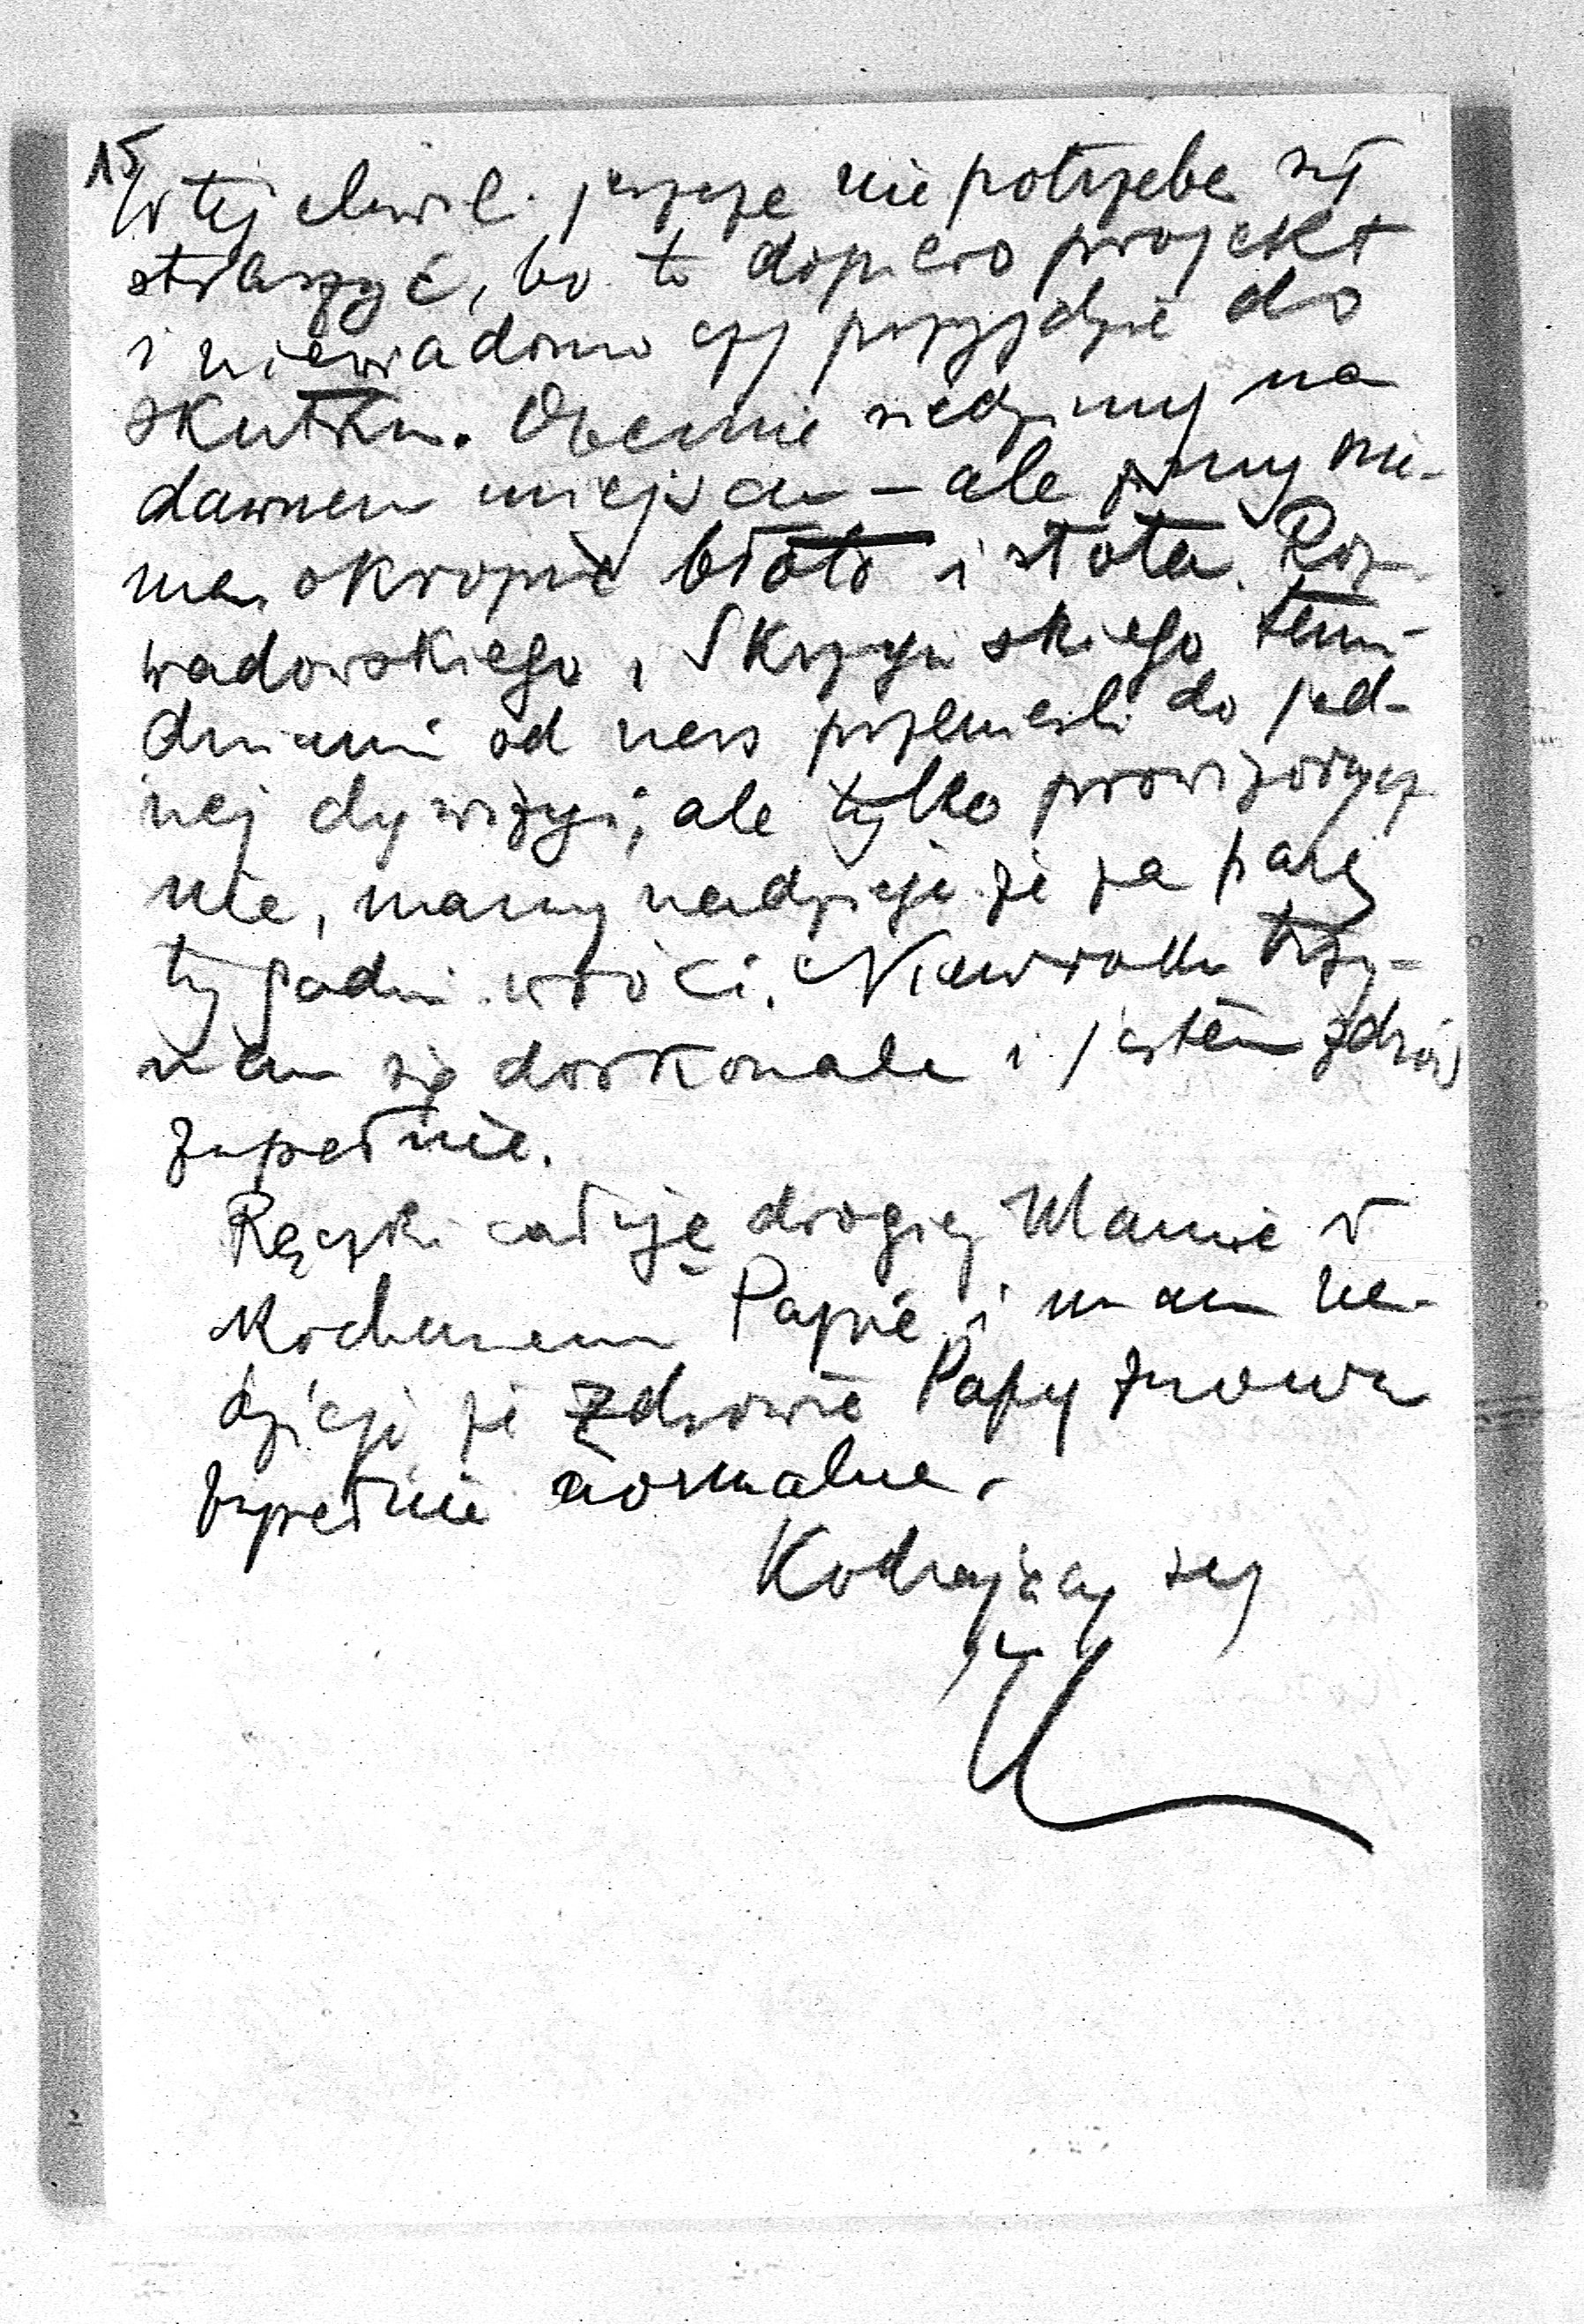 15
W tej chwili jeszcze nie potrzeba się
straszyć, bo to dopiero projekt
i niewiadomo czy przyjdzie do
skutku. Obecnie siedzimy na
dawnem miejscu – ale mamy
okropne błoto i słota. Roz-
wadowskiego i Skrzyńskiego temi
dniami od nas przenieśli do jed-
nej dywizyi, ale tylko prowizorycz
nie, mamy nadzieję że za parę
tygodni wróci. Nawrotu trzy-
mam się doskonale i jestem zdrów
zupełnie.
Rączki całuję drogiej Mamie i
Kochanem Papie i mam na-
dzieję że zdrowie Papy znowu
zupełnie normalne.
Kochający syn